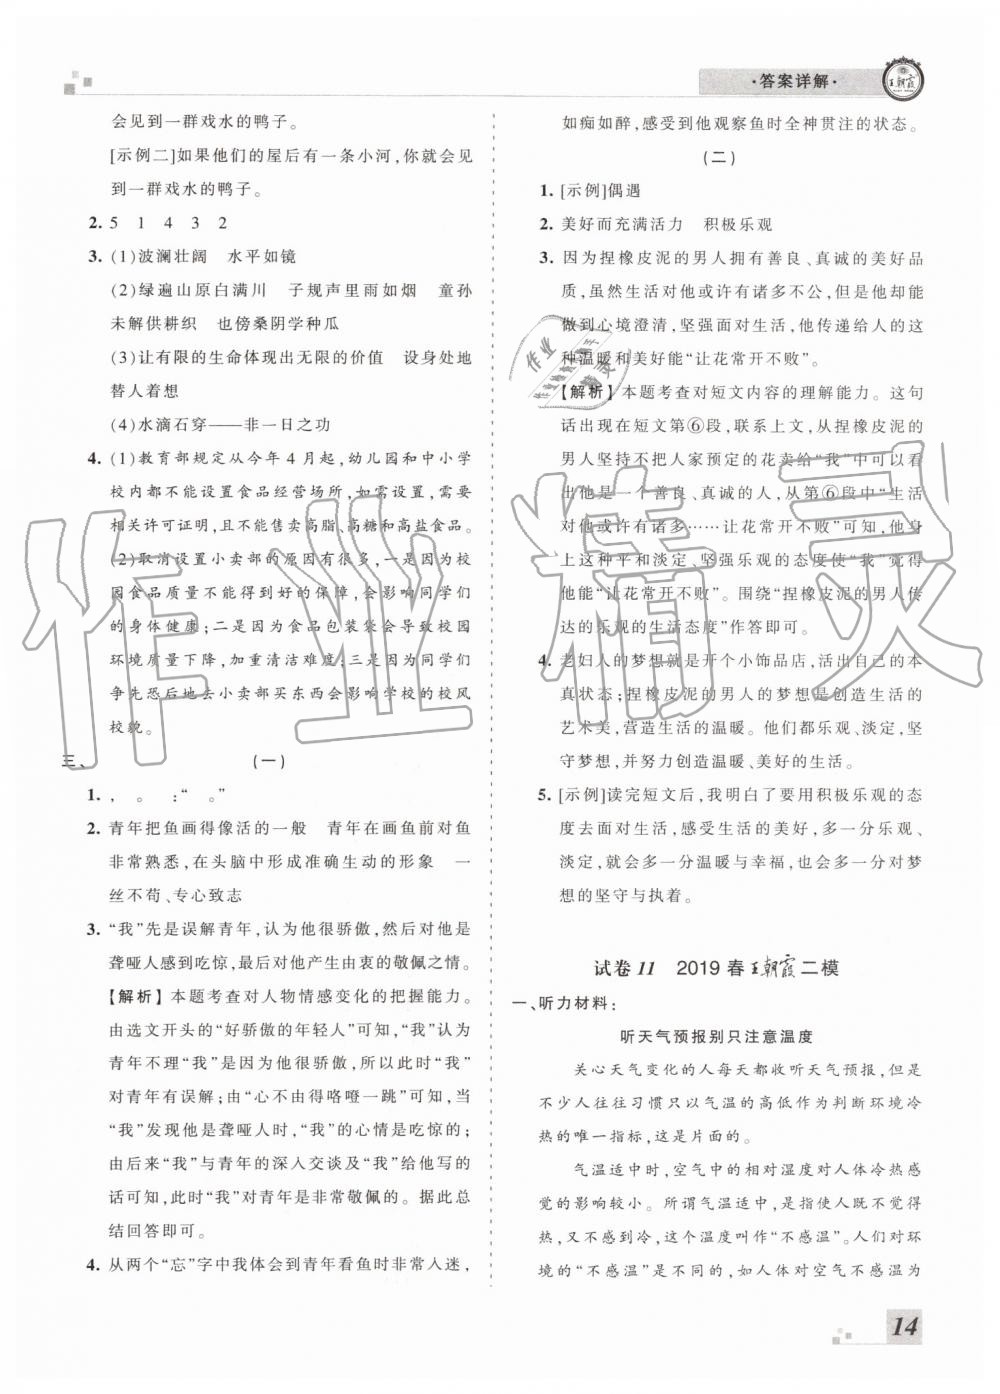 ·答案详解·
王朝霞
会见到一群戏水的鸭子。
[示例二]如果他们的屋后有一条小河,你就会见
到一群戏水的鸭子。
2. 5 1 4 3 2
3. (1)波澜壮阔 水平如镜
(2)绿遍山原白满川 子规声里雨如烟 童孙
未解供耕织 也傍桑阴学种瓜
(3)让有限的生命体现出无限的价值 设身处地
替人着想
(4)水滴石穿——非一日之功
4. (1)教育部规定从今年4月起,幼儿园和中小学
校内都不能设置食品经营场所,如需设置,需要
相关许可证明,且不能售卖高脂、高糖和高盐食品。
(2)取消设置小卖部的原因有很多,一是因为校
园食品质量不能得到很好的保障,会影响同学们
的身体健康;二是因为食品包装袋会导致校园
环境质量下降,加重清洁难度;三是因为同学们
争先恐后地去小卖部买东西会影响学校的校风
校貌。
三、 (一)
1. , 。 :“ 。”
2. 青年把鱼画得像活的一般 青年在画鱼前对鱼
非常熟悉,在头脑中形成准确生动的形象 一
丝不苟、专心致志
3. “我”先是误解青年,认为他很骄傲,然后对他是
聋哑人感到吃惊,最后对他产生由衷的敬佩之情。
【解析】本题考查对人物情感变化的把握能力。
由选文开头的“好骄傲的年轻人”可知,“我”认为
青年不理“我”是因为他很骄傲,所以此时“我”对
青年有误解;由“心不由得咯噔一跳”可知,当
“我”发现他是聋哑人时,“我”的心情是吃惊的;
由后来“我”与青年的深入交谈及“我”给他写的
话可知,此时“我”对青年是非常敬佩的。据此总
结回答即可。
4. 从两个“忘”字中我体会到青年看鱼时非常入迷,
如痴如醉,感受到他观察鱼时全神贯注的状态。
(二)
1. [示例]偶遇
2. 美好而充满活力 积极乐观
3. 因为捏橡皮泥的男人拥有善良、真诚的美好品
质,虽然生活对他或许有诸多不公,但是他却能
做到心境澄清,坚强面对生活,他传递给人的这
种温暖和美好能“让花常开不败”。
【解析】本题考查对短文内容的理解能力。这句
话出现在短文第⑥段,联系上文,从捏橡皮泥的
男人坚持不把人家预定的花卖给“我”中可以看
出他是一个善良、真诚的人,从第⑥段中“生活
对他或许有诸多……让花常开不败”可知,他身
上这种平和淡定、坚强乐观的态度使“我”觉得
他能“让花常开不败”。围绕“捏橡皮泥的男人传
达的乐观的生活态度”作答即可。
4. 老妇人的梦想就是开个小饰品店,活出自己的本
真状态;捏橡皮泥的男人的梦想是创造生活的
艺术美,营造生活的温暖。他们都乐观、淡定,坚
守梦想,并努力创造美好的生活。
5. [示例]读完短文后,我明白了要用积极乐观的态
度去面对生活,感受生活的美好,多一分乐观、
淡定,就会多一分温暖与幸福,也会多一分对梦
想的坚守与执着。
试卷11 2019春王朝霞二模
一、听力材料:
听天气预报别只注意温度
关心天气变化的人每天都收听天气预报,但是
不少人往往习惯只以气温的高低作为判断环境冷
热的唯一指标,这是片面的。
气温适中时,空气中的相对湿度对人体冷热感
觉的影响较小。所谓气温适中,是指使人既不觉得
热,又不感到冷,这个温度叫作“不感温”。人们对环
境的“不感温”是不同的,如人体对空气不感温为
14
作业精灵